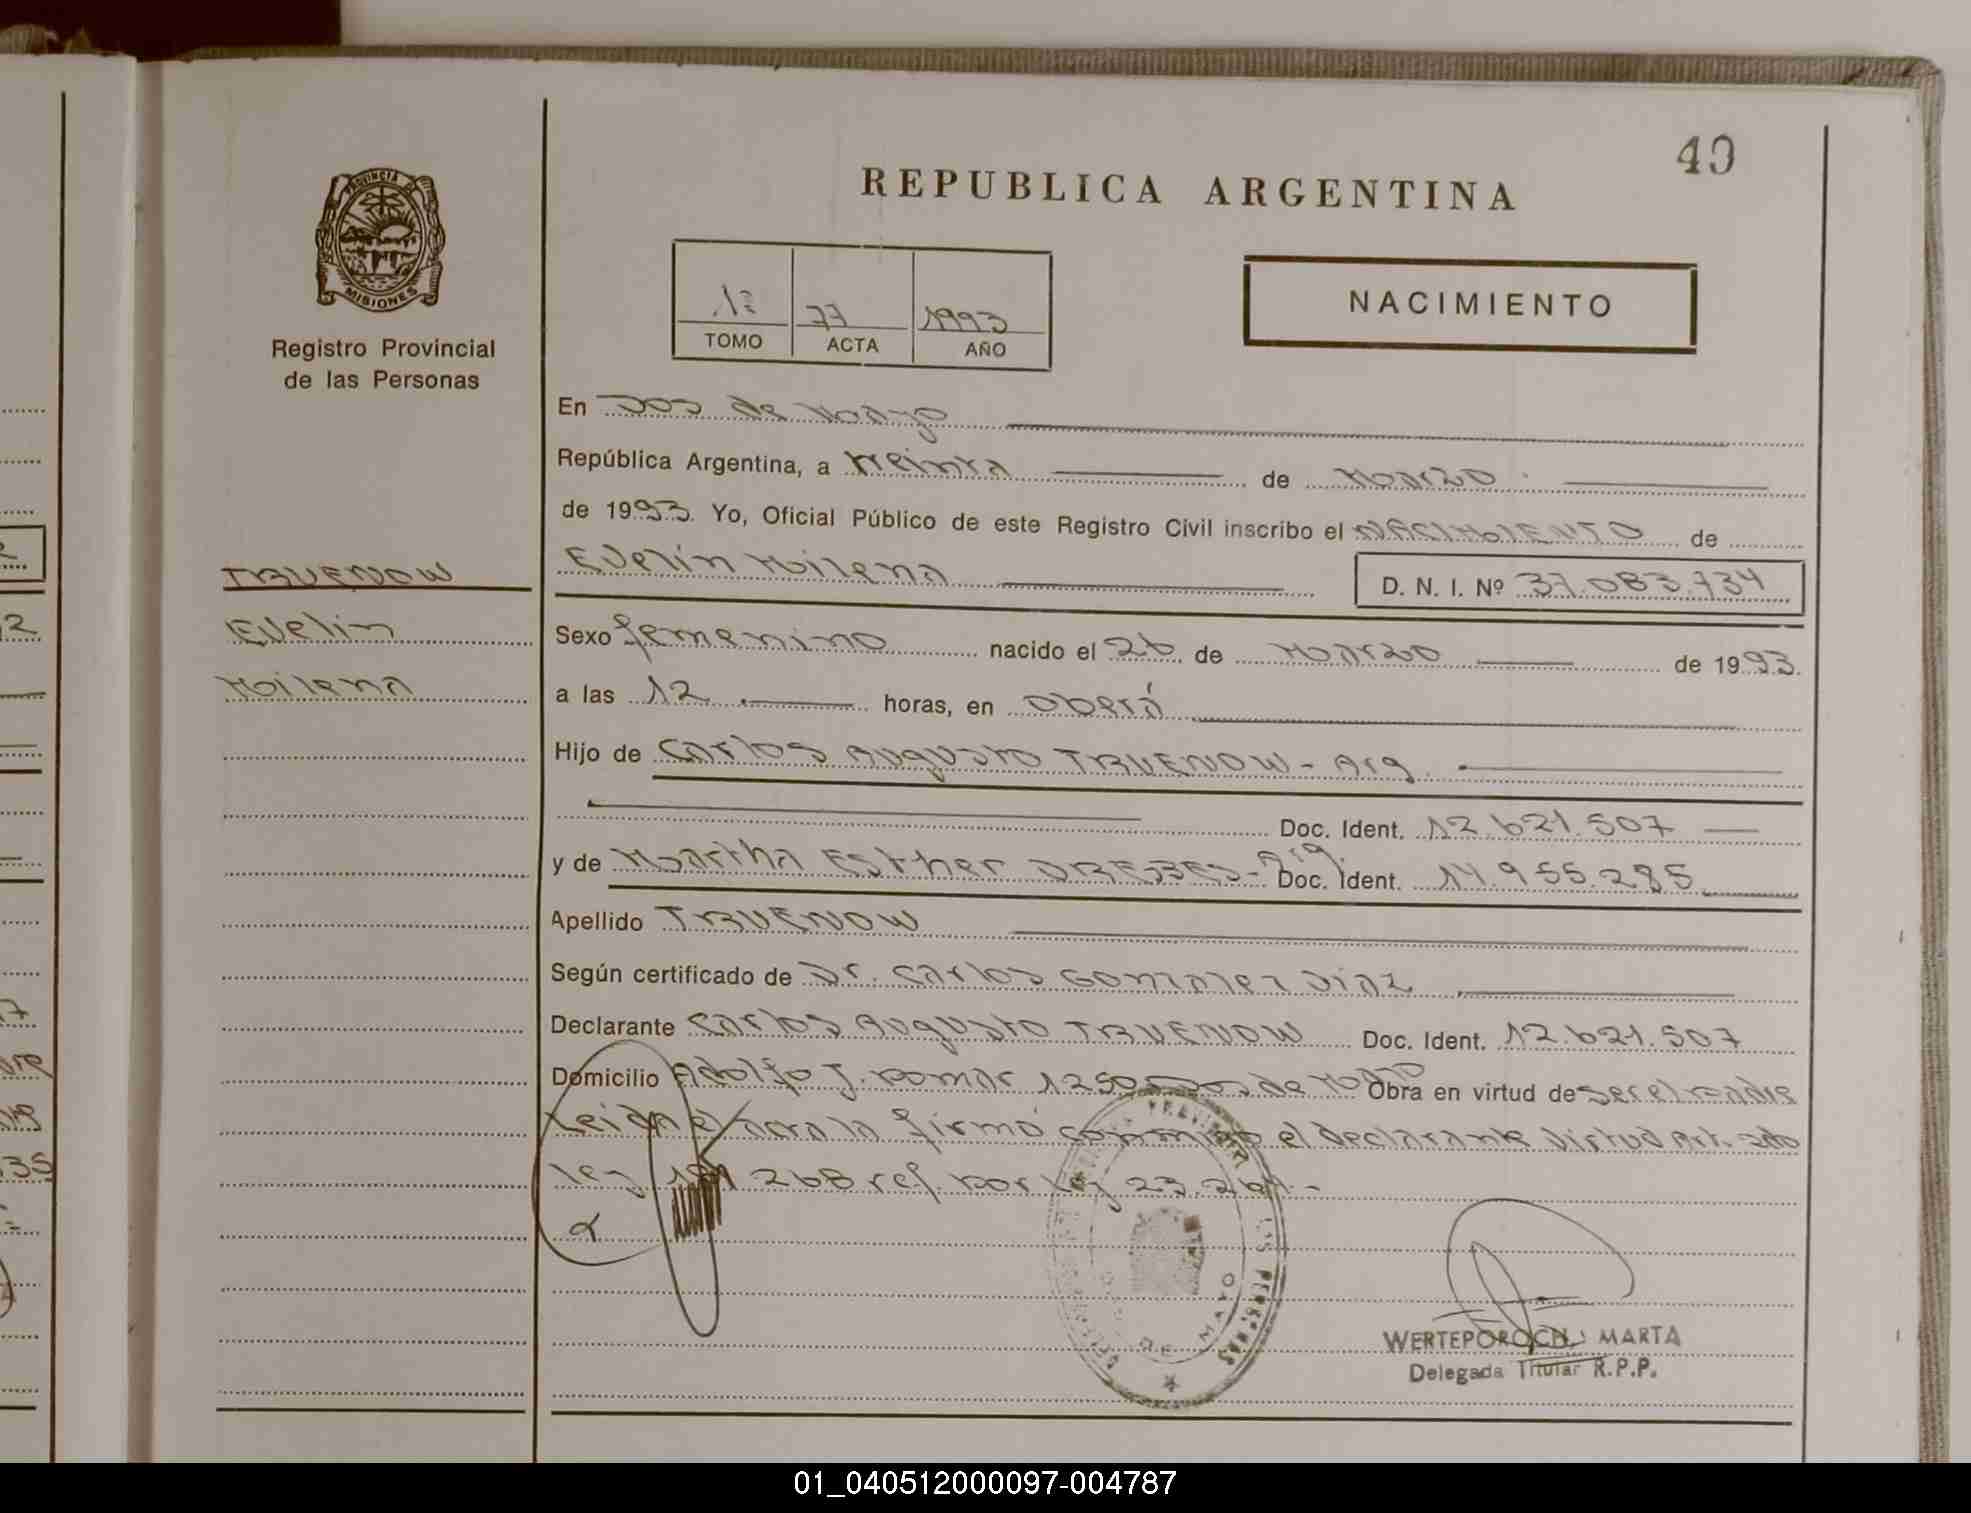 40
REPUBLICA ARGENTINA
PROVINCIA DE
MISIONES
Registro Provincial
de las Personas
1º 77 1993
TOMO ACTA AÑO
NACIMIENTO
En Dos de Mayo
República Argentina, a treinta de Marzo
de 1993. Yo, Oficial Público de este Registro Civil inscribo el NACIMIENTO de
TRUENOW
Evelin Milena D. N. I. Nº 37.083.734
Evelin
Sexo femenino nacido el 26 de Marzo de 1993.
Milena
a las 12 horas, en Oberá
Hijo de Carlos Augusto TRUENOW - Arg.
Doc. Ident. 12.621.507
y de Martha Esther DRESBES - Arg. Doc. Ident. 14.955.285
Apellido TRUENOW
Según certificado de Dr. Carlos Gonzalez Diaz
Declarante Carlos Augusto TRUENOW Doc. Ident. 12.621.507
Domicilio Adolfo J. Pomar 1250 Dos de Mayo Obra en virtud de ser el padre
Leida el acta la firmó conmigo el declarante virtud Art. 2do
ley 18 268 ref. por ley 23.264.-
DE MAYO
LAS PERSONAS
WERTEPOROCH, MARTA
Delegada Titular R.P.P.
01_040512000097-004787